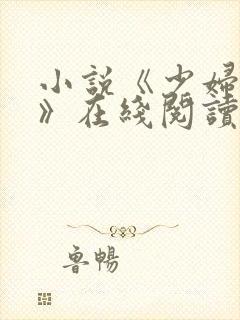 小說《少婦
》在綫閱讀
魯暢